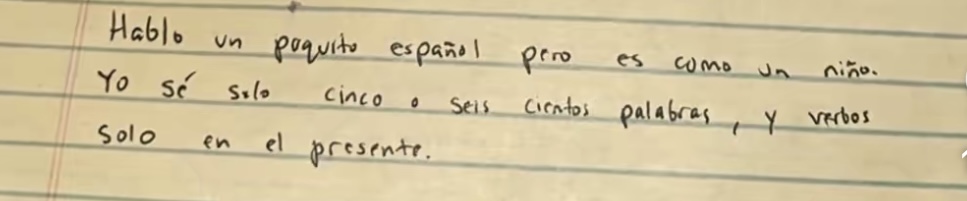 Hablo un poquito español pero es como un niño.
Yo sé solo cinco o seis cientos palabras, y verbos
solo en el presente.